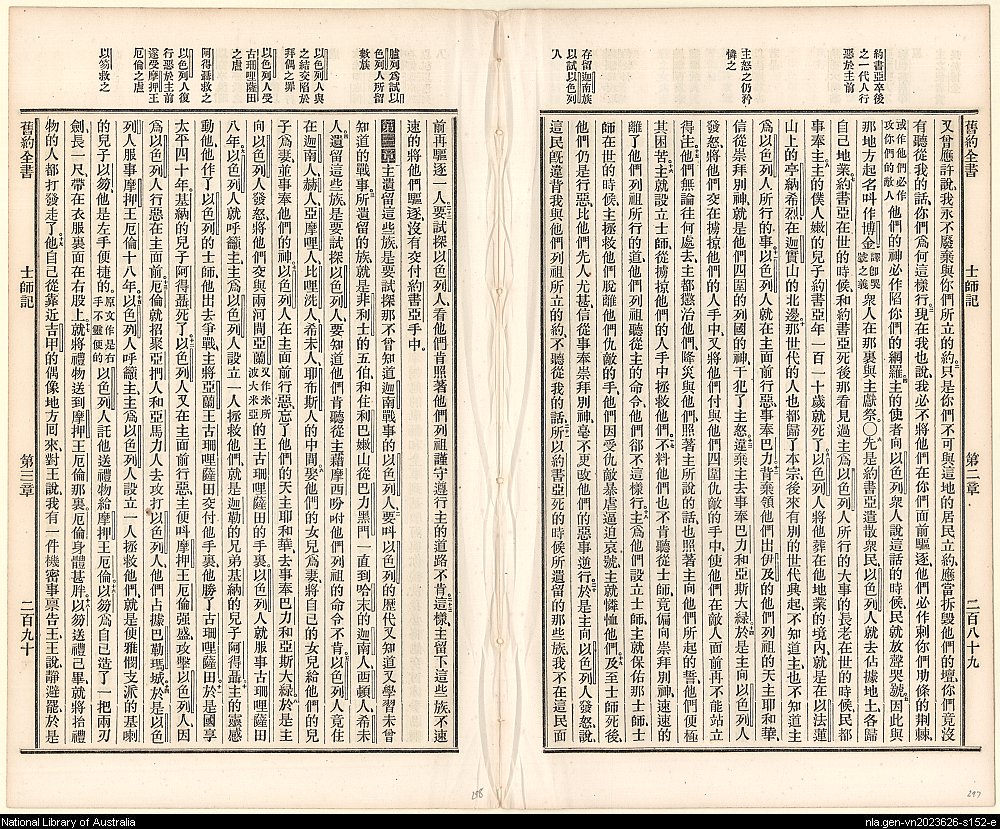 約書亞卒後
之一代人行
惡於主前
主怒之仍矜
憐之
存留迦南族
以試以色列
人
舊約全書 士師記 第二章 二百八十九
又曾應許說我永不廢棄與你們所立的約只是你們不可與這地的居民立約應當拆毀他們的壇你們竟沒
有聽從我的話你們爲何這樣行現在我也說我必不將他們在你們面前驅逐他們必作刺你們肋條的荆棘
或作他們必作攻你們的敵人他們的神必作陷你們的網羅主的使者向以色列衆人說這話的時候民就放聲哭號因此與
那地方起名叫作博金譯卽哭號之義衆人在那裏與主獻祭〇先是約書亞遣散衆民以色列人就去佔據地土各歸
自己地業約書亞在世的時候和約書亞死後那看見過主爲以色列人所行的大事的長老在世的時候民都
事奉主主的僕人嫩的兒子約書亞年一百一十歲就死了以色列人將他葬在他地業的境內就是在以法蓮
山上的亭納希烈在迦實山的北邊那世代的人也都歸了本宗後來有別的世代興起不知道主也不知道主
爲以色列人所行的事以色列人就在主面前行惡事奉巴力背棄領他們出伊及的他們列祖的天主耶和華
信從崇拜別神就是他們四圍的列國的神干犯了主怒違棄主去事奉巴力和亞斯大綠於是主向以色列人
發怒將他們交在擄掠他們的人手中又將他們付與他們四圍仇敵的手中使他們在敵人面前再不能站立
得住他們無論往何處去主都懲治他們降災與他們照著主所說的話也照著主向他們所起的誓他們便極
其困苦主就設立士師從擄掠他們的人手中拯救他們不料他們也不肯聽從士師竟偏向崇拜別神速速的
離了他們列祖所行的道他們列祖聽從主的命令他們卻不這樣行主爲他們設立士師主就保佑那士師
師在世的時候主拯救他們脫離他們仇敵的手他們因受仇敵暴虐逼迫哀號主就憐恤他們及至士師死後
他們仍是行惡比他們先人尤甚信從事奉崇拜別神毫不更改他們的惡事逆行於是主向以色列人發怒說
這民旣違背我與他們列祖所立的約不聽從我的話所以約書亞死的時候所遺留的那些族我不在這民面
臚列爲試以
色列人所留
數族
以色列人與
之結交陷於
拜偶之罪
以色列人受
古珊哩薩田
之虐
阿得聶救之
以色列人復
行惡於主前
遂受摩押王
厄倫之虐
以笏救之
前再驅逐一人要試探以色列人看他們肯照著他們列祖謹守遵行主的道路不肯這樣主留下這些族不速
速的將他們驅逐沒有交付約書亞手中
第三章主遺留這些族是要試探那不曾知道迦南戰事的以色列人要叫以色列的歷代又知道又學習未曾
知道的戰事所遺留的族就是非利士的五伯和住利巴嫩山從巴力黑門一直到哈末的迦南人西頓人希未
人遺留這些族是要試探以色列人要知道他們肯聽從主藉摩西吩咐他們列祖的命令不肯以色列人竟住
在迦南人赫人亞摩哩人比哩洗人希未人耶布斯人的中間娶他們的女兒爲妻將自己的女兒給他們的兒
子爲妻並事奉他們的神以色列人在主面前行惡忘了他們的天主耶和華去事奉巴力和亞斯大綠於是主
向以色列人發怒將他們交與兩河間亞蘭又作米所波大米亞的王古珊哩薩田的手裏以色列人就服事古珊哩薩田
八年以色列人就呼籲主主爲以色列人設立一人拯救他們就是迦勒的兄弟基納的兒子阿得聶主的靈感
動他他作了以色列的士師他出去爭戰主將亞蘭王古珊哩薩田交付他手裏他勝了古珊哩薩田於是國享
太平四十年基納的兒子阿得聶死了以色列人又在主面前行惡主便叫摩押王厄倫強盛攻擊以色列人因
爲以色列人行惡在主面前厄倫就招聚亞捫人和亞馬力人去攻打以色列人他們占據巴勒瑪城於是以色
列人服事摩押王厄倫十八年以色列人呼籲主主爲以色列人設立一人拯救他們就是便雅憫支派的基喇
的兒子以笏他是左手便捷的原文作是右手不靈便的以色列人託他送禮物給摩押王厄倫以笏爲自己造了一把兩刃
劍長一尺帶在衣服裏面在右股上就將禮物送到摩押王厄倫那裏厄倫身體甚胖以笏送禮已畢就將抬禮
物的人都打發走了他自己從靠近吉甲的偶像地方囘來對王說我有一件機密事禀告王王說靜避罷於是
舊約全書 士師記 第三章 二百九十
298
297
National Library of Australia
nla.gen-vn2023626-s152-e